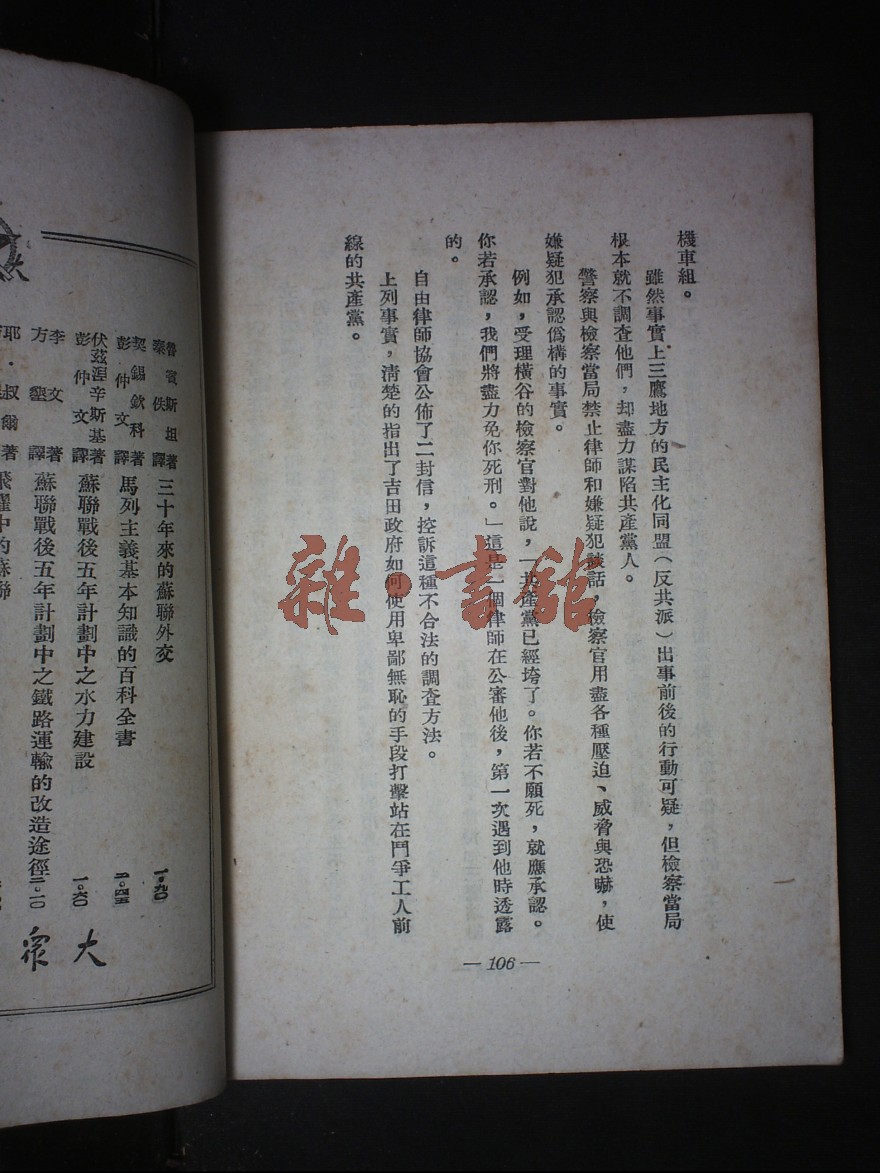 機車組。
雖然事實上三鷹地方的民主化同盟（反共派）出事前後的行動可疑，但檢察當局
根本就不調查他們，却盡力謀陷共產黨人。
警察與檢察當局禁止律師和嫌疑犯談話，檢察官用盡各種壓迫、威脅與恐嚇，使
嫌疑犯承認僞構的事實。
例如，受理橫谷的檢察官對他說，「共產黨已經垮了。你若不願死，就應承認。
你若承認，我們將盡力免你死刑。」這是一個律師在公審他後，第一次遇到他時透露
的。
自由律師協會公佈了二封信，控訴這種不合法的調查方法。
上列事實，清楚的指出了吉田政府如何使用卑鄙無恥的手段打擊站在鬥爭工人前
線的共產黨。
— 106 —
雜·書館
魯賓斯坦著
秦佚譯
三十年來的蘇聯外交
一·九〇
契錫欽科著
彭仲文譯
馬列主義基本知識的百科全書
二·四五
伏茲涅辛斯基著
彭仲文譯
蘇聯戰後五年計劃中之水力建設
一·六〇
李文著
方譯
蘇聯戰後五年計劃中之鐵路運輸的改造途徑
二·一〇
耶·叔爾著
中的蘇聯
大眾